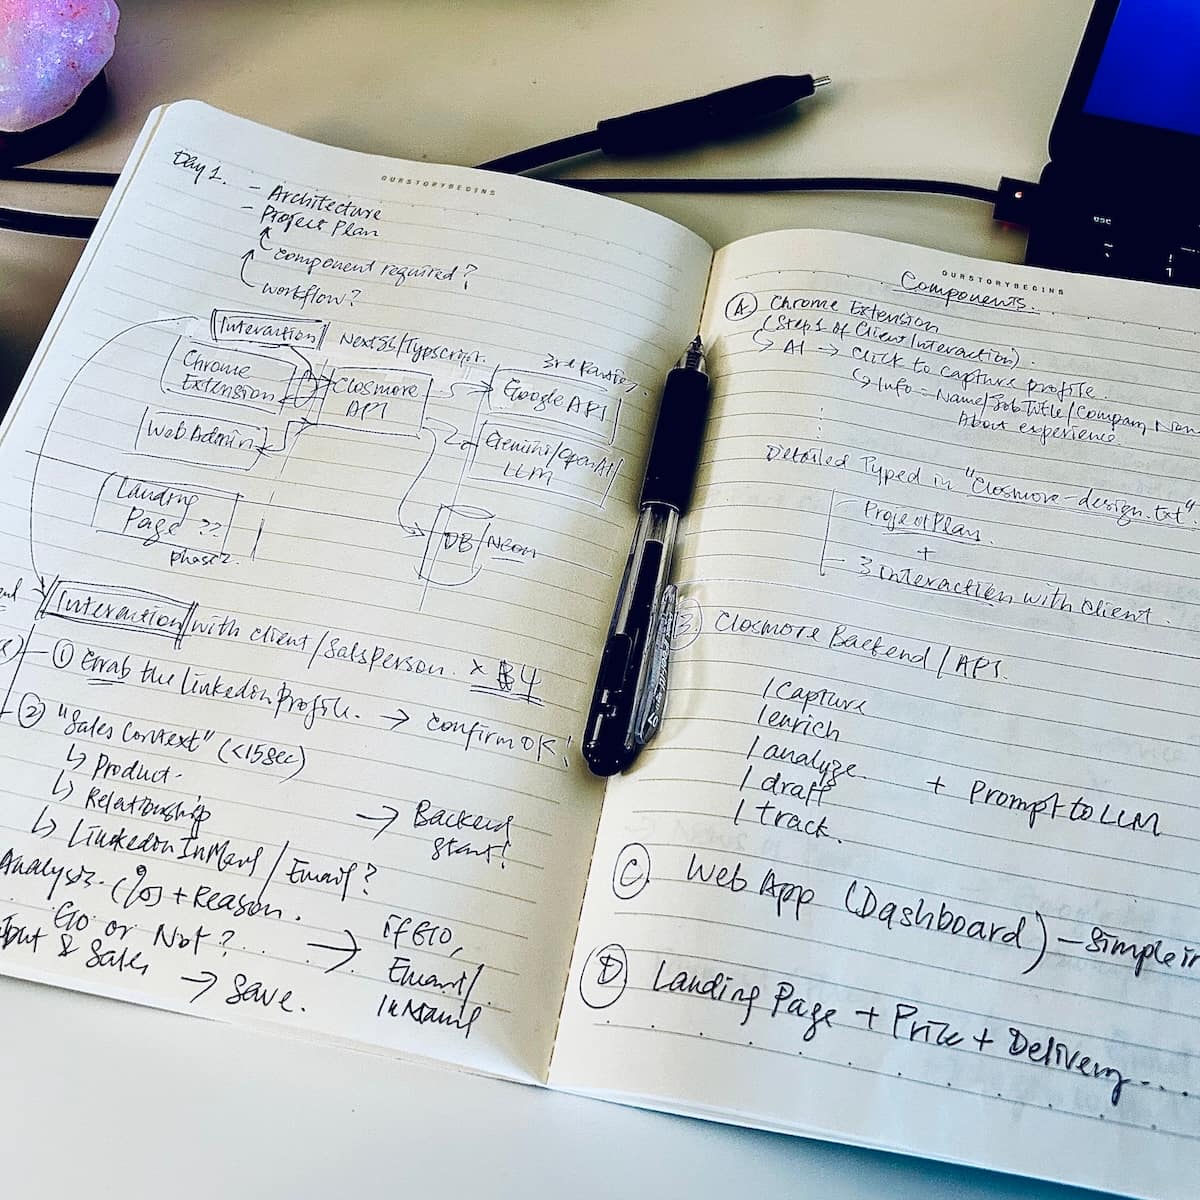 OURSTORYBEGINS
Day 1.
- Architecture
- Project Plan
component required?
workflow?
Interaction
NextJS/Typscript.
3rd Parties
Chrome
Extension
Closmore
API
Google API
Web Admin
Gemini/OpenAI/
LLM
Landing
Page ??
phase 2.
DB/Neon
Interaction with client/salsperson. x 4
① Grab the linkedin profile. → confirm OK!
② "Sales Context" (<15sec)
↳ Product.
↳ Relationship
↳ Linkedin InMail / Email?
→ Backend
start!
Analysis. (%) + Reason.
Go or Not? → if GO,
Email/
InMail
& Sales → Save.
OURSTORYBEGINS
Components.
Ⓐ Chrome Extension
(Step 1 of Client Interaction).
↳ AI → click to capture profile.
↳ Info = Name/Job Title/Company Nam
About experience
Detailed Typed in "closmore-design.txt"
Project Plan.
+
- 3 interaction with client.
Closmore Backend / API.
/capture
/enrich
/analyze
/draft
/track.
+ Prompt to LLM
Ⓒ Web App (Dashboard) - Simple in
Ⓓ Landing Page + Price + Delivery...
esc